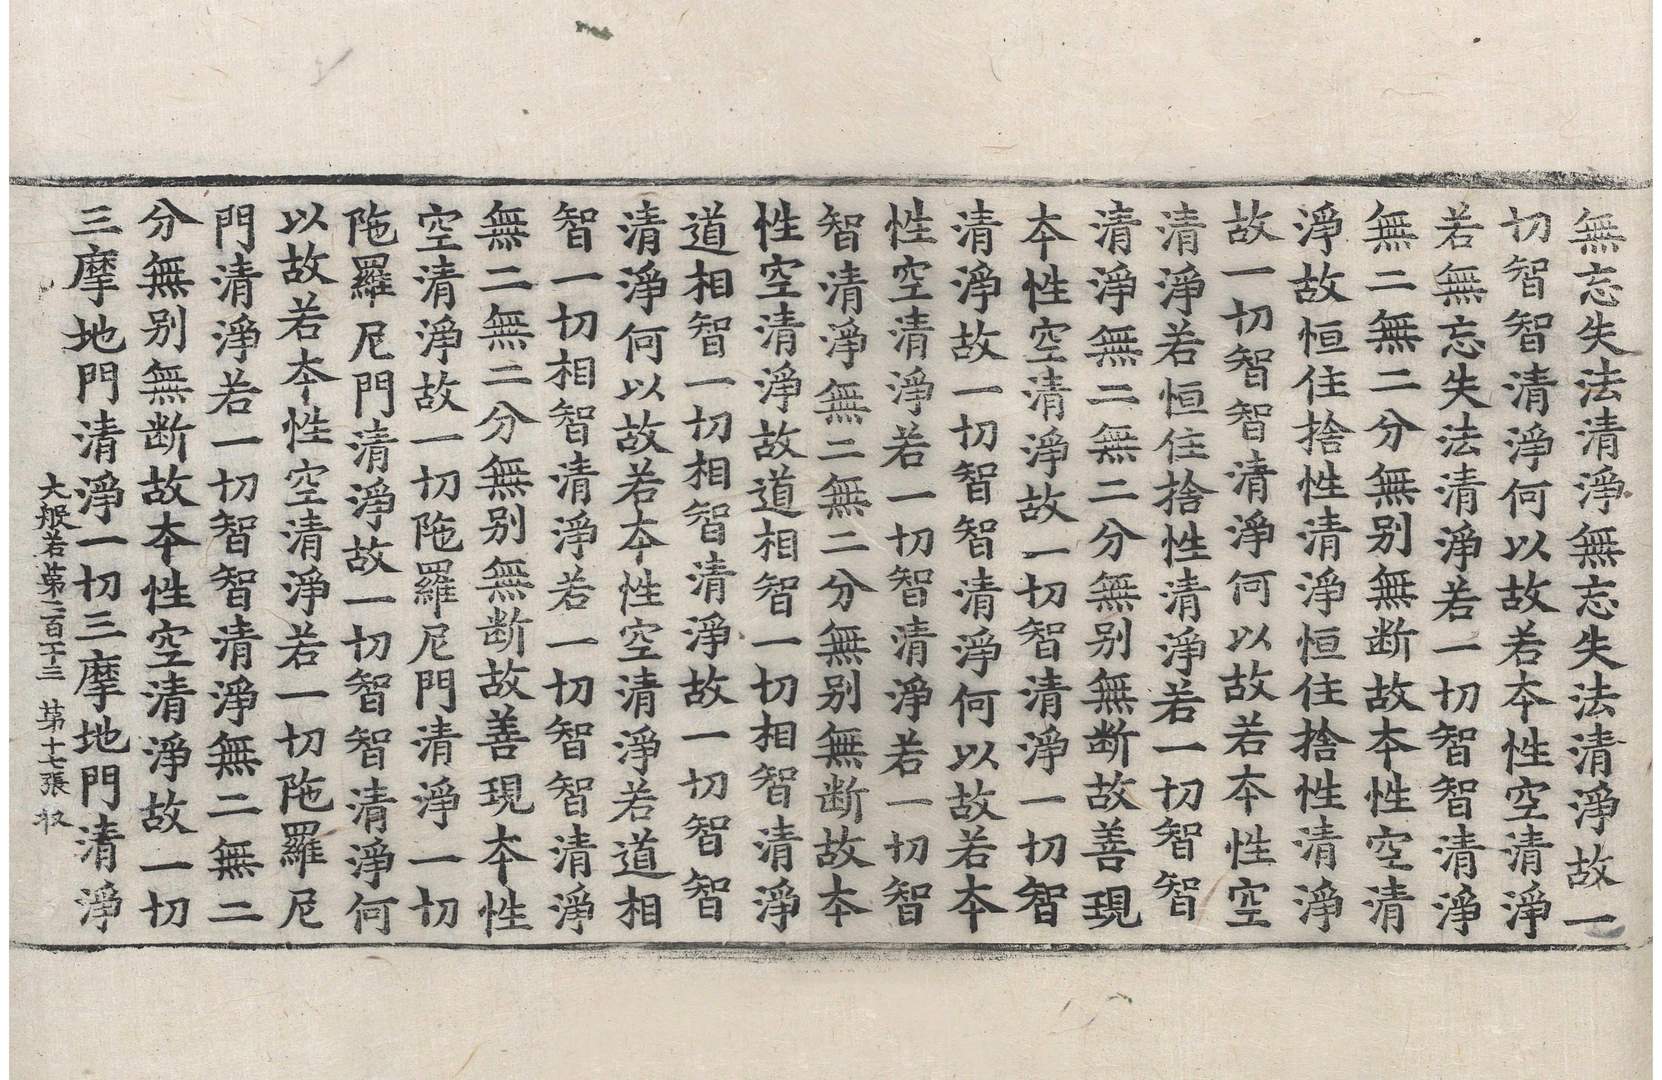 無忘失法清淨無忘失法清淨故一
切智智清淨何以故若本性空清淨
若無忘失法清淨若一切智智清淨
無二無二分無别無断故本性空清
淨故恒住捨性清淨恒住捨性清淨
故一切智智清淨何以故若本性空
清淨若恒住捨性清淨若一切智智
清淨無二無二分無别無断故善現
本性空清淨故一切智清淨一切智
清淨故一切智智清淨何以故若本
性空清淨若一切智清淨若一切智
智清淨無二無二分無别無断故本
性空清淨故道相智一切相智清淨
道相智一切相智清淨故一切智智
清淨何以故若本性空清淨若道相
智一切相智清淨若一切智智清淨
無二無二分無别無断故善現本性
空清淨故一切陁羅尼門清淨一切
陁羅尼門清淨故一切智智清淨何
以故若本性空清淨若一切陁羅尼
門清淨若一切智智清淨無二無二
分無别無断故本性空清淨故一切
三摩地門清淨一切三摩地門清淨
大般若第二百五十三 第十七張